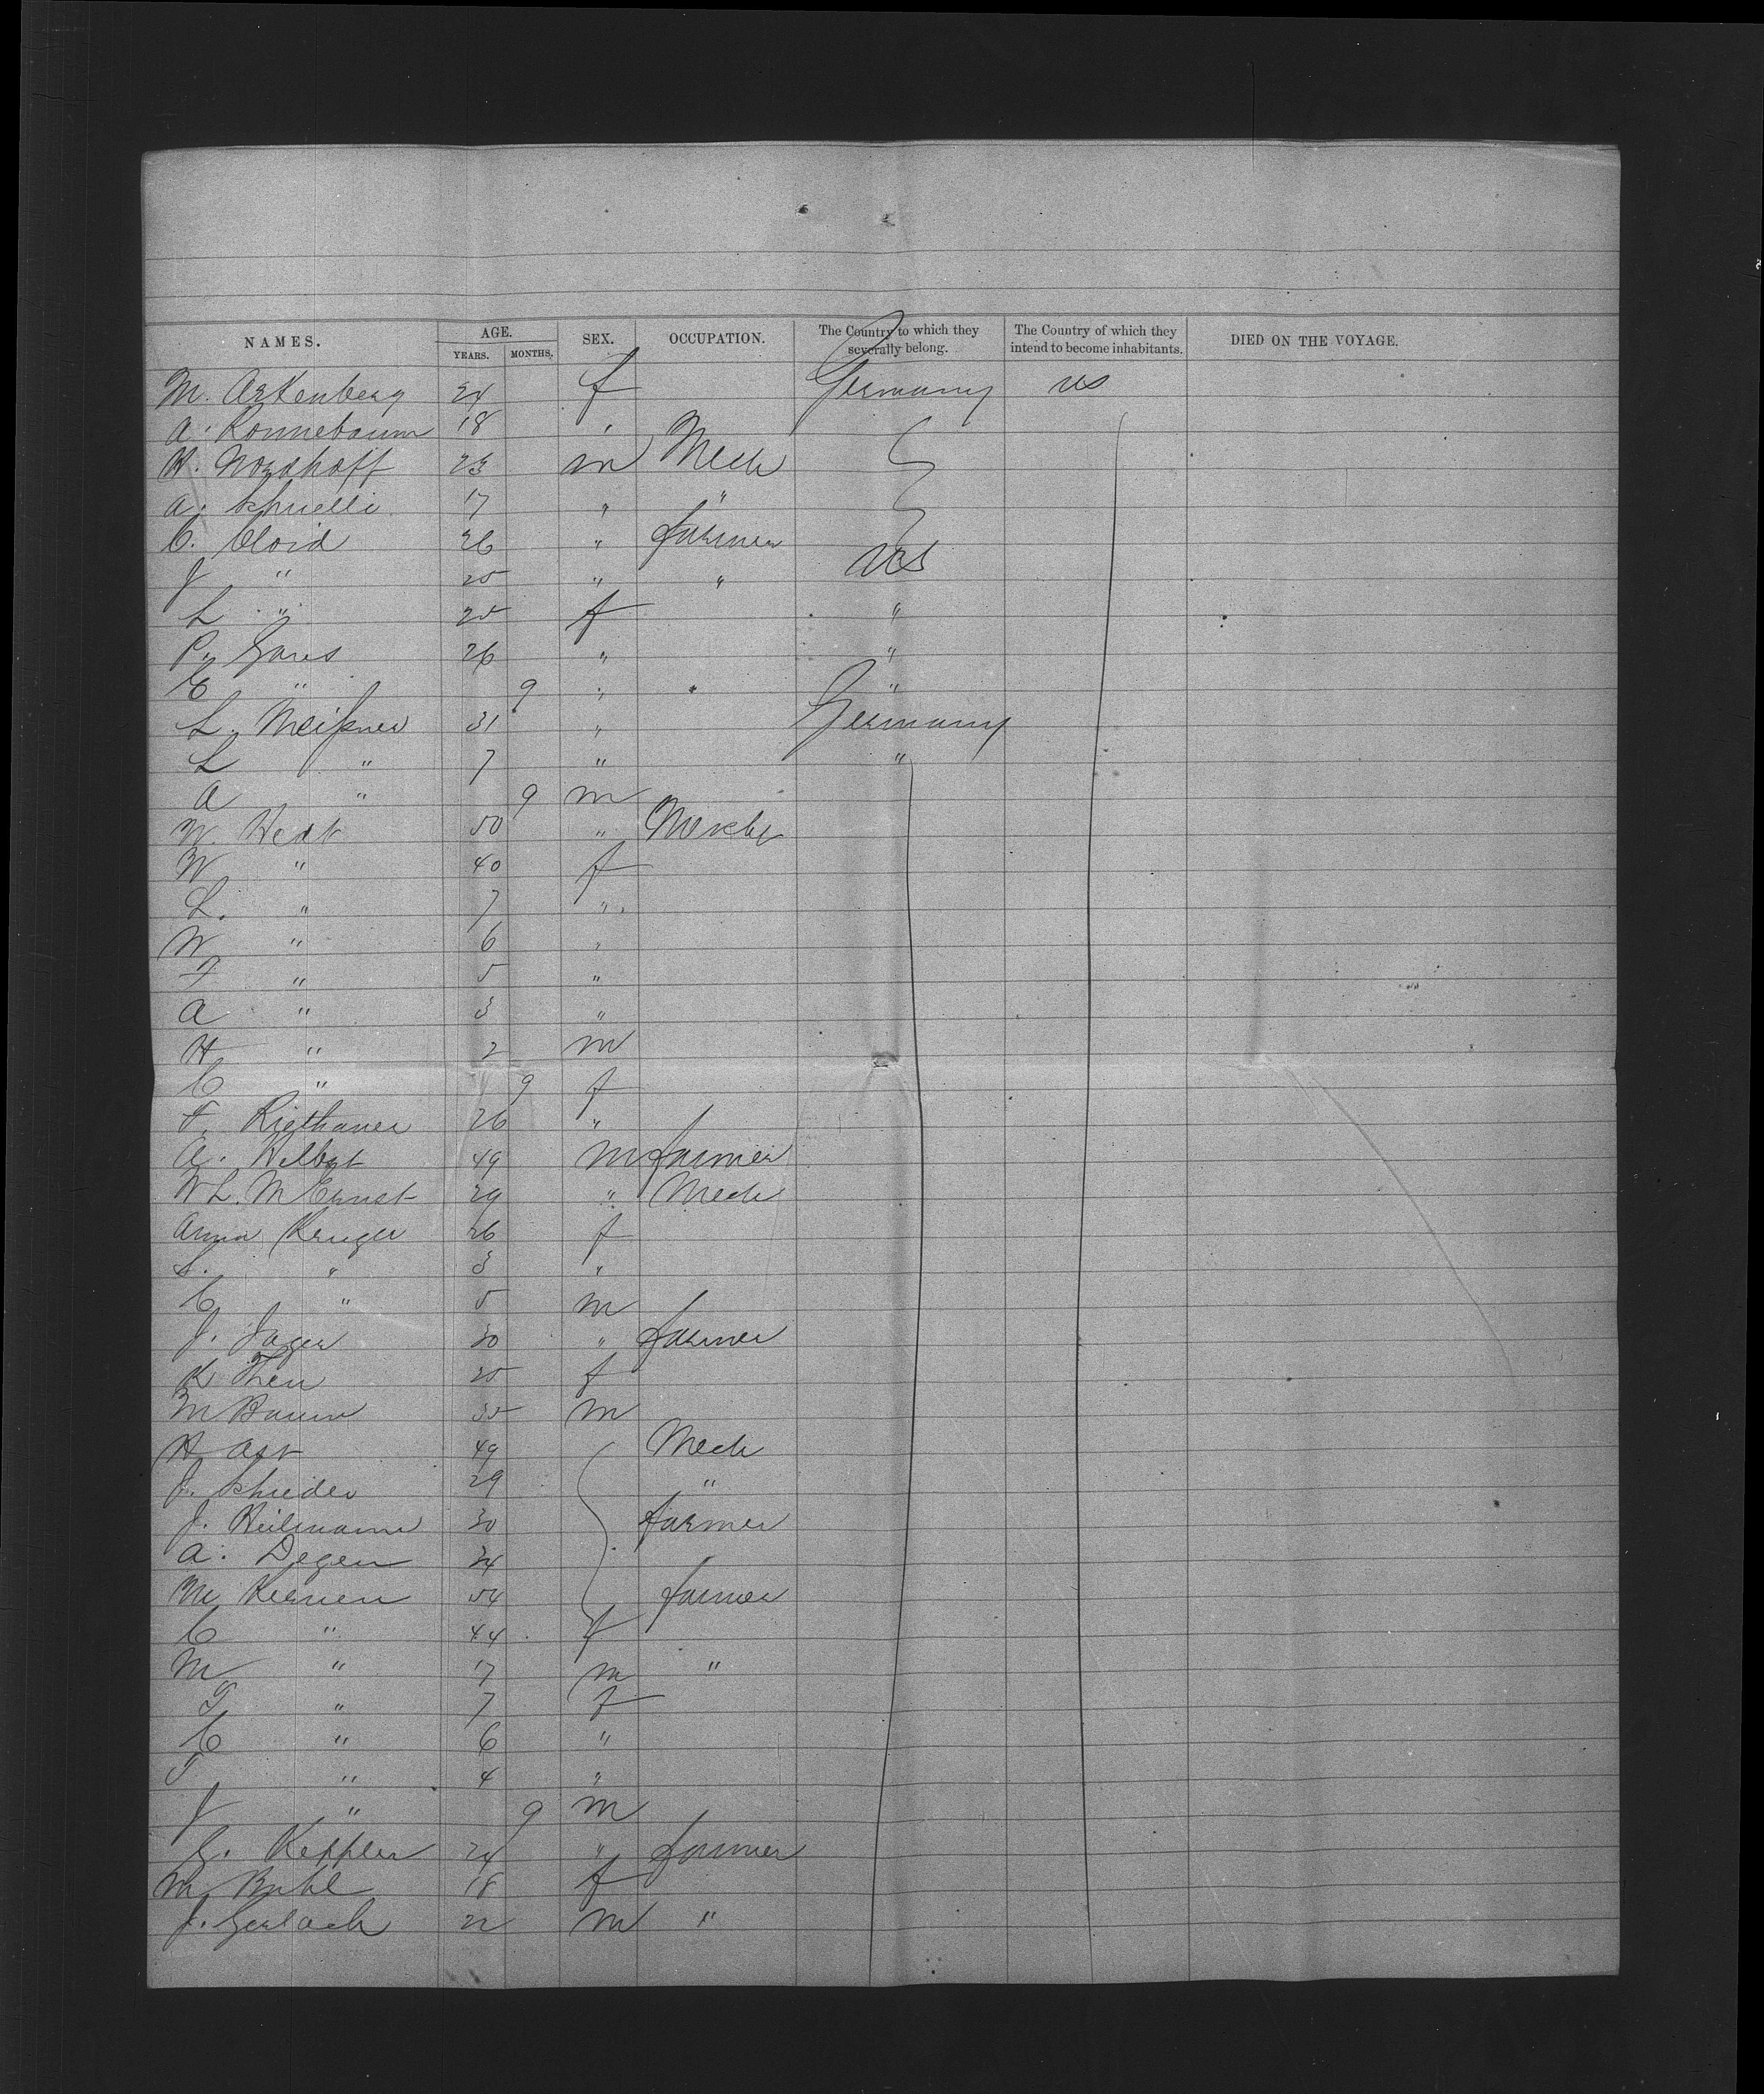 NAMES. AGE. YEARS. MONTHS. SEX. OCCUPATION. The Country to which they severally belong. The Country of which they intend to become inhabitants. DIED ON THE VOYAGE.
M. Arkenberg 24 f Germany US
A. Ronnebaum 18 "
H. Nordhoff 23 m Mech
A. Schnelli 17 " "
C. Cloid 26 " farmer
J " 25 " " US
L " 25 f "
P. Gares 26 " "
E " 9 " "
L. Meißner 31 " Germany
L " 7 " "
A " 9 m
W. Hecht 50 "
W " 40 f
L. " 7 "
W " 6 "
F " 5 "
A " 3 "
H " 2 m
C " 9 f
F. Riethauer 26 "
A. 49 m farmer
W. L. M Ernst 29 " Mech
Anna Kruger 26 f
S. " 3 "
C " 5 m
J. Jager 30 " farmer
K 25 f
M Baum 35 m
H Ast 49 Mech
J. Schieder 29 "
J. Heilmann 30 farmer
A. Degen 34
M 54 farmer
C " 44 f
M " 17 m "
T " 7 f
C " 6 "
T " 4 "
J " 9 m
G. Keppler 24 " farmer
M. Buhl 18 f
J. Gerlach 22 m "